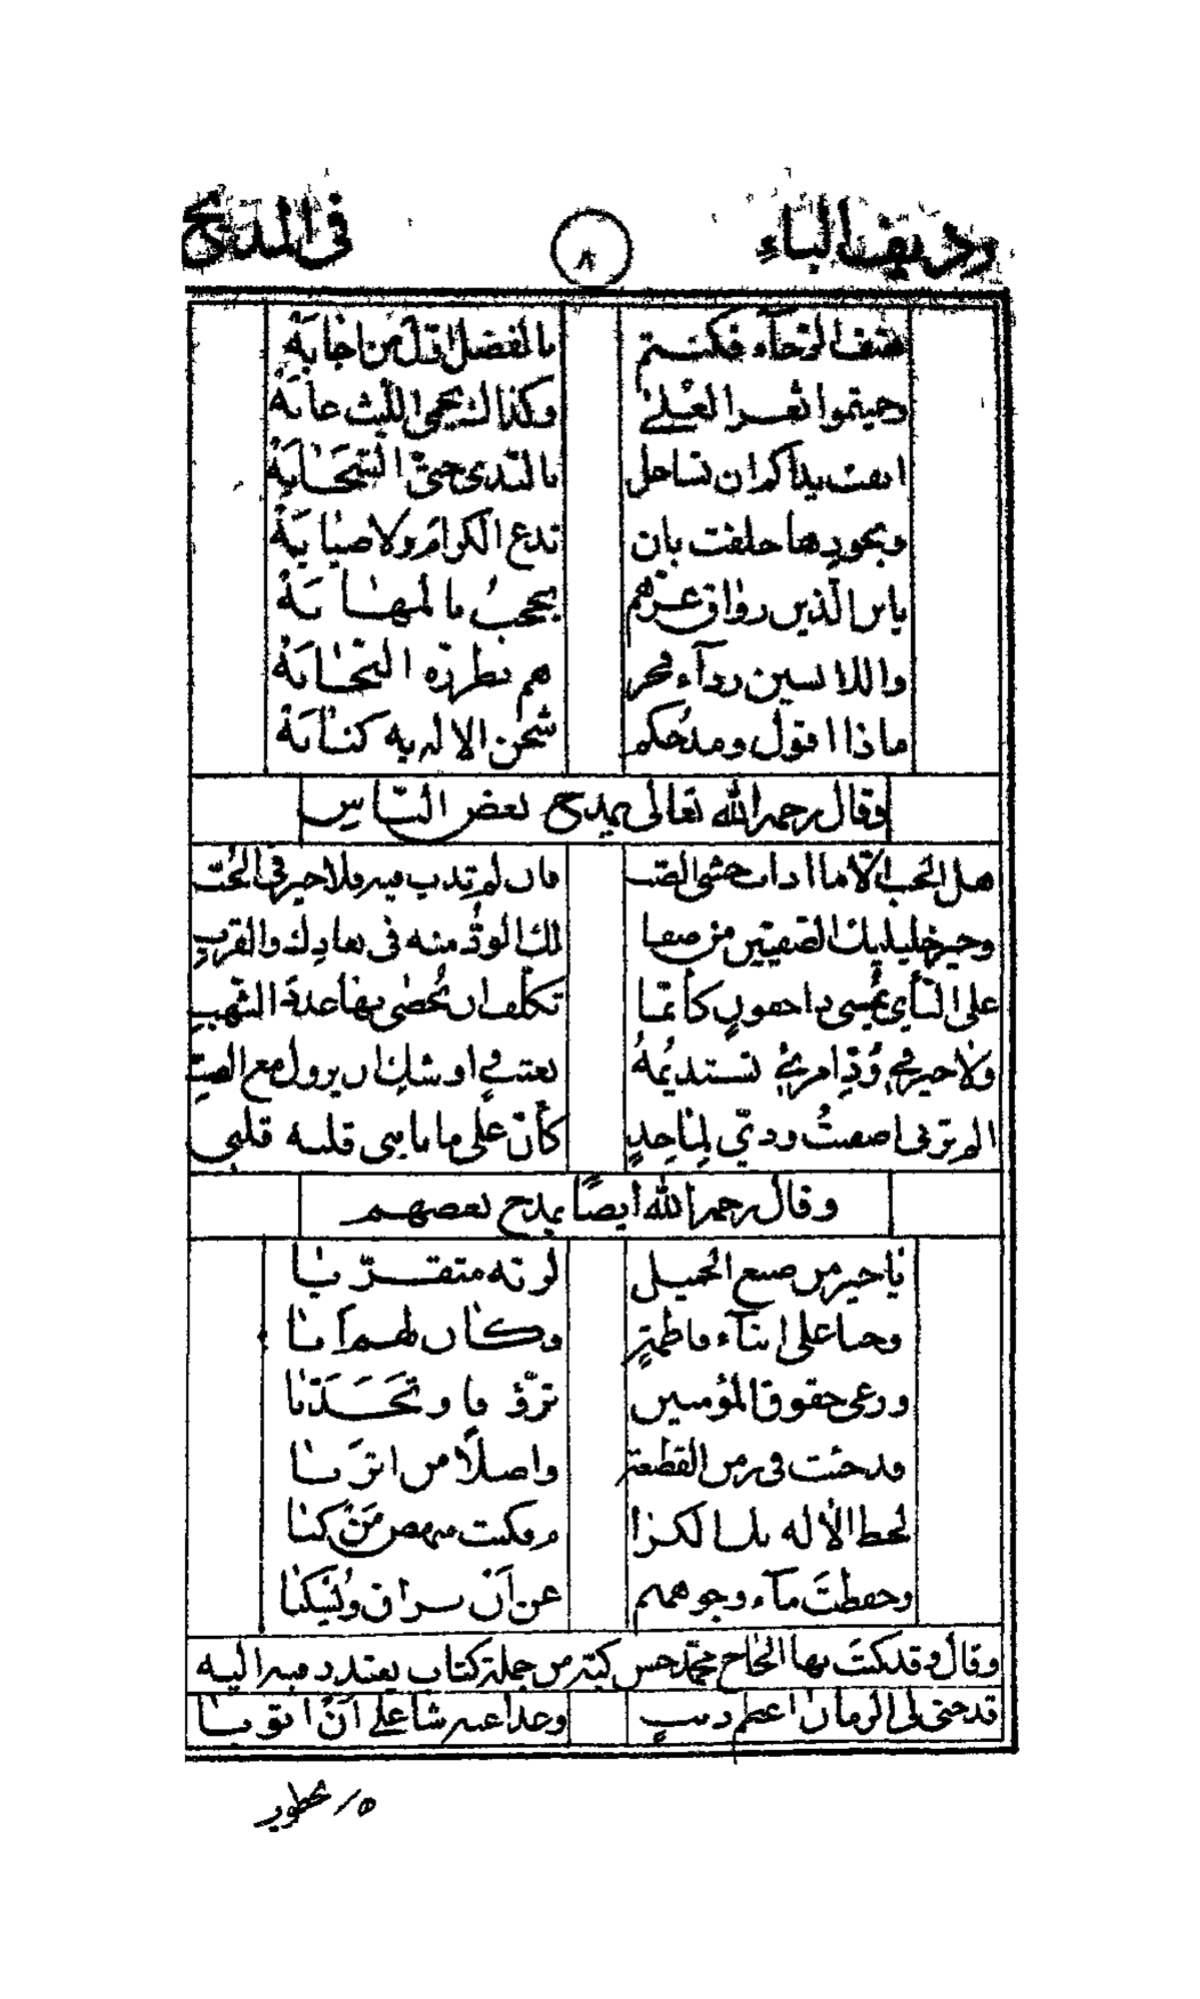 رديف الباء ٨ في المديح
هتف الرجآء فكنتم بالفضل اوّل من اجابَهْ
وحميتموا ثغر العُلىٰ وكذاك يحمي الليث غابَهْ
انفت يداكم ان تساجل بالنّدى حتّى السّحابَهْ
وبجودها حلفت بان تدع الكرام ولا صبابَهْ
يابن الّذين رواق عزهم يحجبُ بالمهابَهْ
واللابسين ردآء فخر هم نطرزه النّجابَهْ
ماذا اقول ومدحكم شحن الاله به كتابَهْ
وقال رحمه الله تعالى يمدح بعض النّاس
هل الحب الّا ما اذاب حشى الصّب فان لم تذب فيه فلا خير في الحُبّ
وخير خليليك الصّفيين من صفا لك الودُّ منه في بعادك والقرب
على النّأي يُمسي ذا جفونٍ كأنّما تكلّف ان تُحصٰى بها عدة الشّهب
ولا خير في وُدّ امرىءٍ تستديمُهُ بعتب واوشك ان يزول مع العتب
الم ترني اصفيتُ ودّي لماجدٍ كأنّ علىٰ ما بي قلبه قلبي
وقال رحمه الله ايضًا يمدح بعضهم
يا خير من صنع الجميل لربّه متقرّبا
وحنا على ابنآء فاطمةٍ وكان لهم أبا
ورعى حقوق المؤمنين ترّؤفا وتحدّبا
قد جئت في زمن القطيعة واصلًا من اتربا
لحظ الاله بك الكرا م فكنت منهم مَنْ كنا
وحفظتَ مآء وجوههم عن أنْ يراق ويُسكبا
وقال وقد كتبَ بها الحاج محمّد حسن كبّه من جملة كتاب يعتذر فيه اليه
قد جنى لي الزمان اعظم ذنبٍ وغدا عبه شاعلى أنْ اتوبا